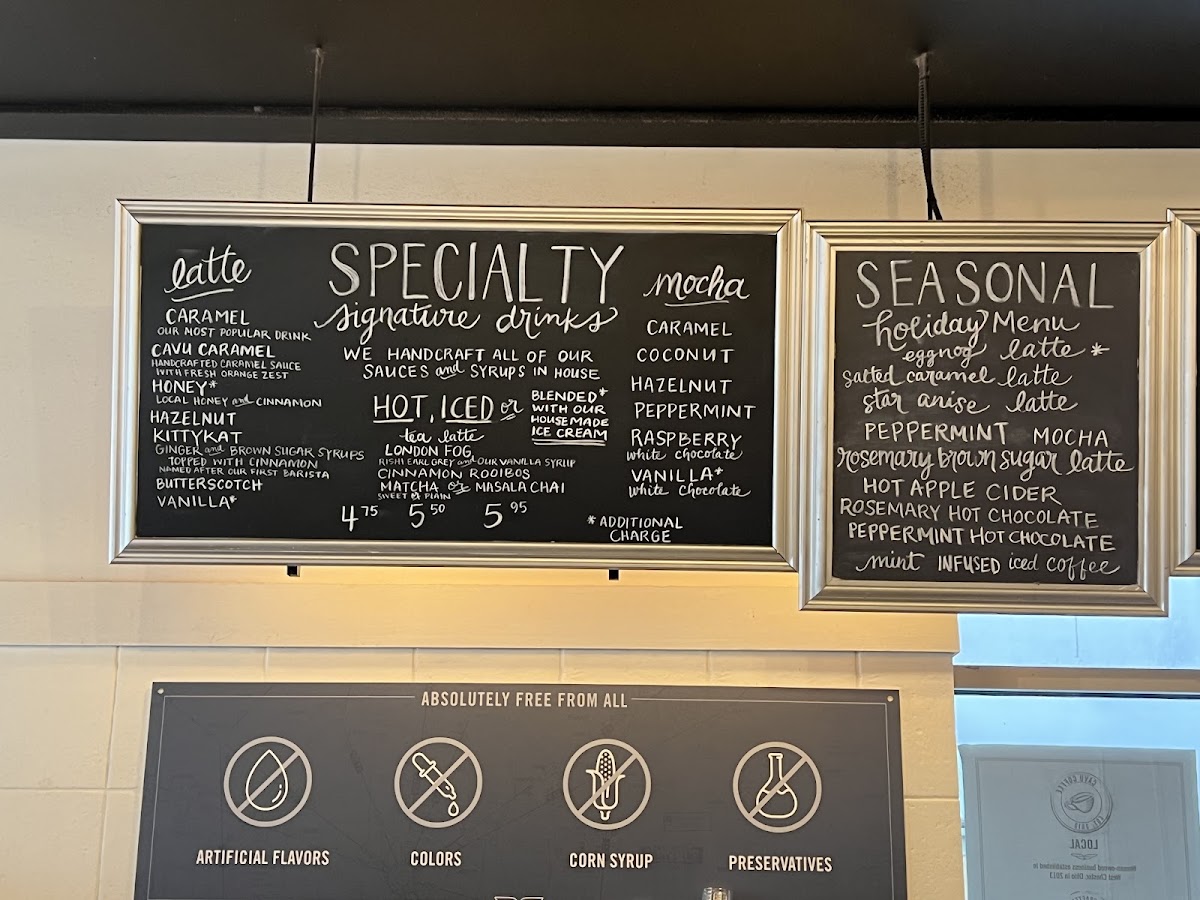 latte
CARAMEL
OUR MOST POPULAR DRINK
CAVU CARAMEL
HANDCRAFTED CARAMEL SAUCE
WITH FRESH ORANGE ZEST
HONEY*
LOCAL HONEY and CINNAMON
HAZELNUT
KITTYKAT
GINGER and BROWN SUGAR SYRUPS
TOPPED WITH CINNAMON
NAMED AFTER OUR FIRST BARISTA
BUTTERSCOTCH
VANILLA*
SPECIALTY
signature drinks
WE HANDCRAFT ALL OF OUR
SAUCES and SYRUPS IN HOUSE
HOT, ICED or
BLENDED*
WITH OUR
HOUSEMADE
ICE CREAM
tea latte
LONDON FOG
RISHI EARL GREY and OUR VANILLA SYRUP
CINNAMON ROOIBOS
MATCHA or MASALA CHAI
SWEET or PLAIN
4 75 5 50 5 95
mocha
CARAMEL
COCONUT
HAZELNUT
PEPPERMINT
RASPBERRY
white chocolate
VANILLA*
white chocolate
*ADDITIONAL
CHARGE
SEASONAL
holiday Menu
eggnog latte*
salted caramel latte
star anise latte
PEPPERMINT MOCHA
rosemary brown sugar latte
HOT APPLE CIDER
ROSEMARY HOT CHOCOLATE
PEPPERMINT HOT CHOCOLATE
mint INFUSED iced coffee
ABSOLUTELY FREE FROM ALL
ARTIFICIAL FLAVORS
COLORS
CORN SYRUP
PRESERVATIVES
CAVU COFFEE
EST. 2013
LOCAL
Women-owned business established in
West Chester, Ohio in 2013